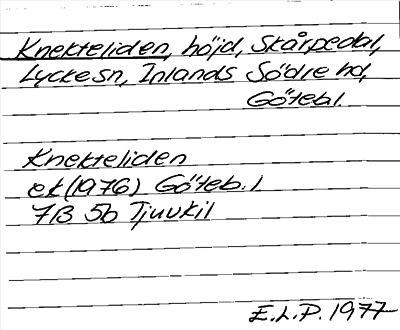 Knekteliden, höjd, Skårpedal,
Lycke sn, Inlands Södre hd,
Götebl.
Knekteliden
ek (1976) Göteb. l
7B 5b Tjuvkil
E.L.P. 1977